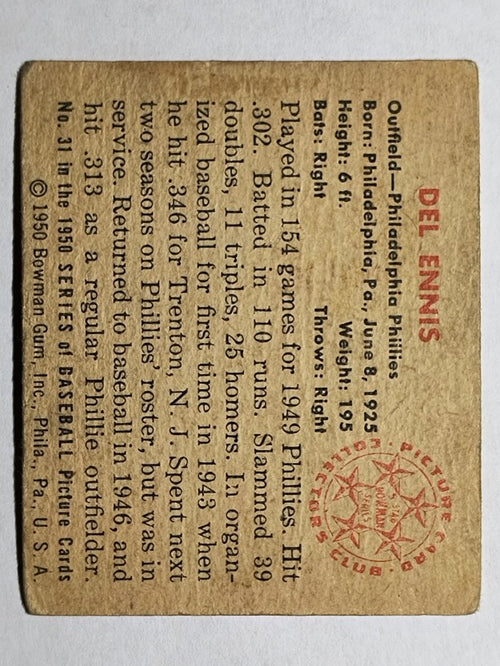 DEL ENNIS
Outfield—Philadelphia Phillies
Born: Philadelphia, Pa., June 8, 1925
Height: 6 ft. Weight: 195
Bats: Right Throws: Right
PICTURE CARD COLLECTORS CLUB
BOWMAN
Played in 154 games for 1949 Phillies. Hit
.302. Batted in 110 runs. Slammed 39
doubles, 11 triples, 25 homers. In organ-
ized baseball for first time in 1943 when
he hit .346 for Trenton, N. J. Spent next
two seasons on Phillies' roster, but was in
service. Returned to baseball in 1946, and
hit .313 as a regular Phillie outfielder.
No. 31 in the 1950 SERIES of BASEBALL Picture Cards
© 1950 Bowman Gum, Inc., Phila., Pa., U. S. A.